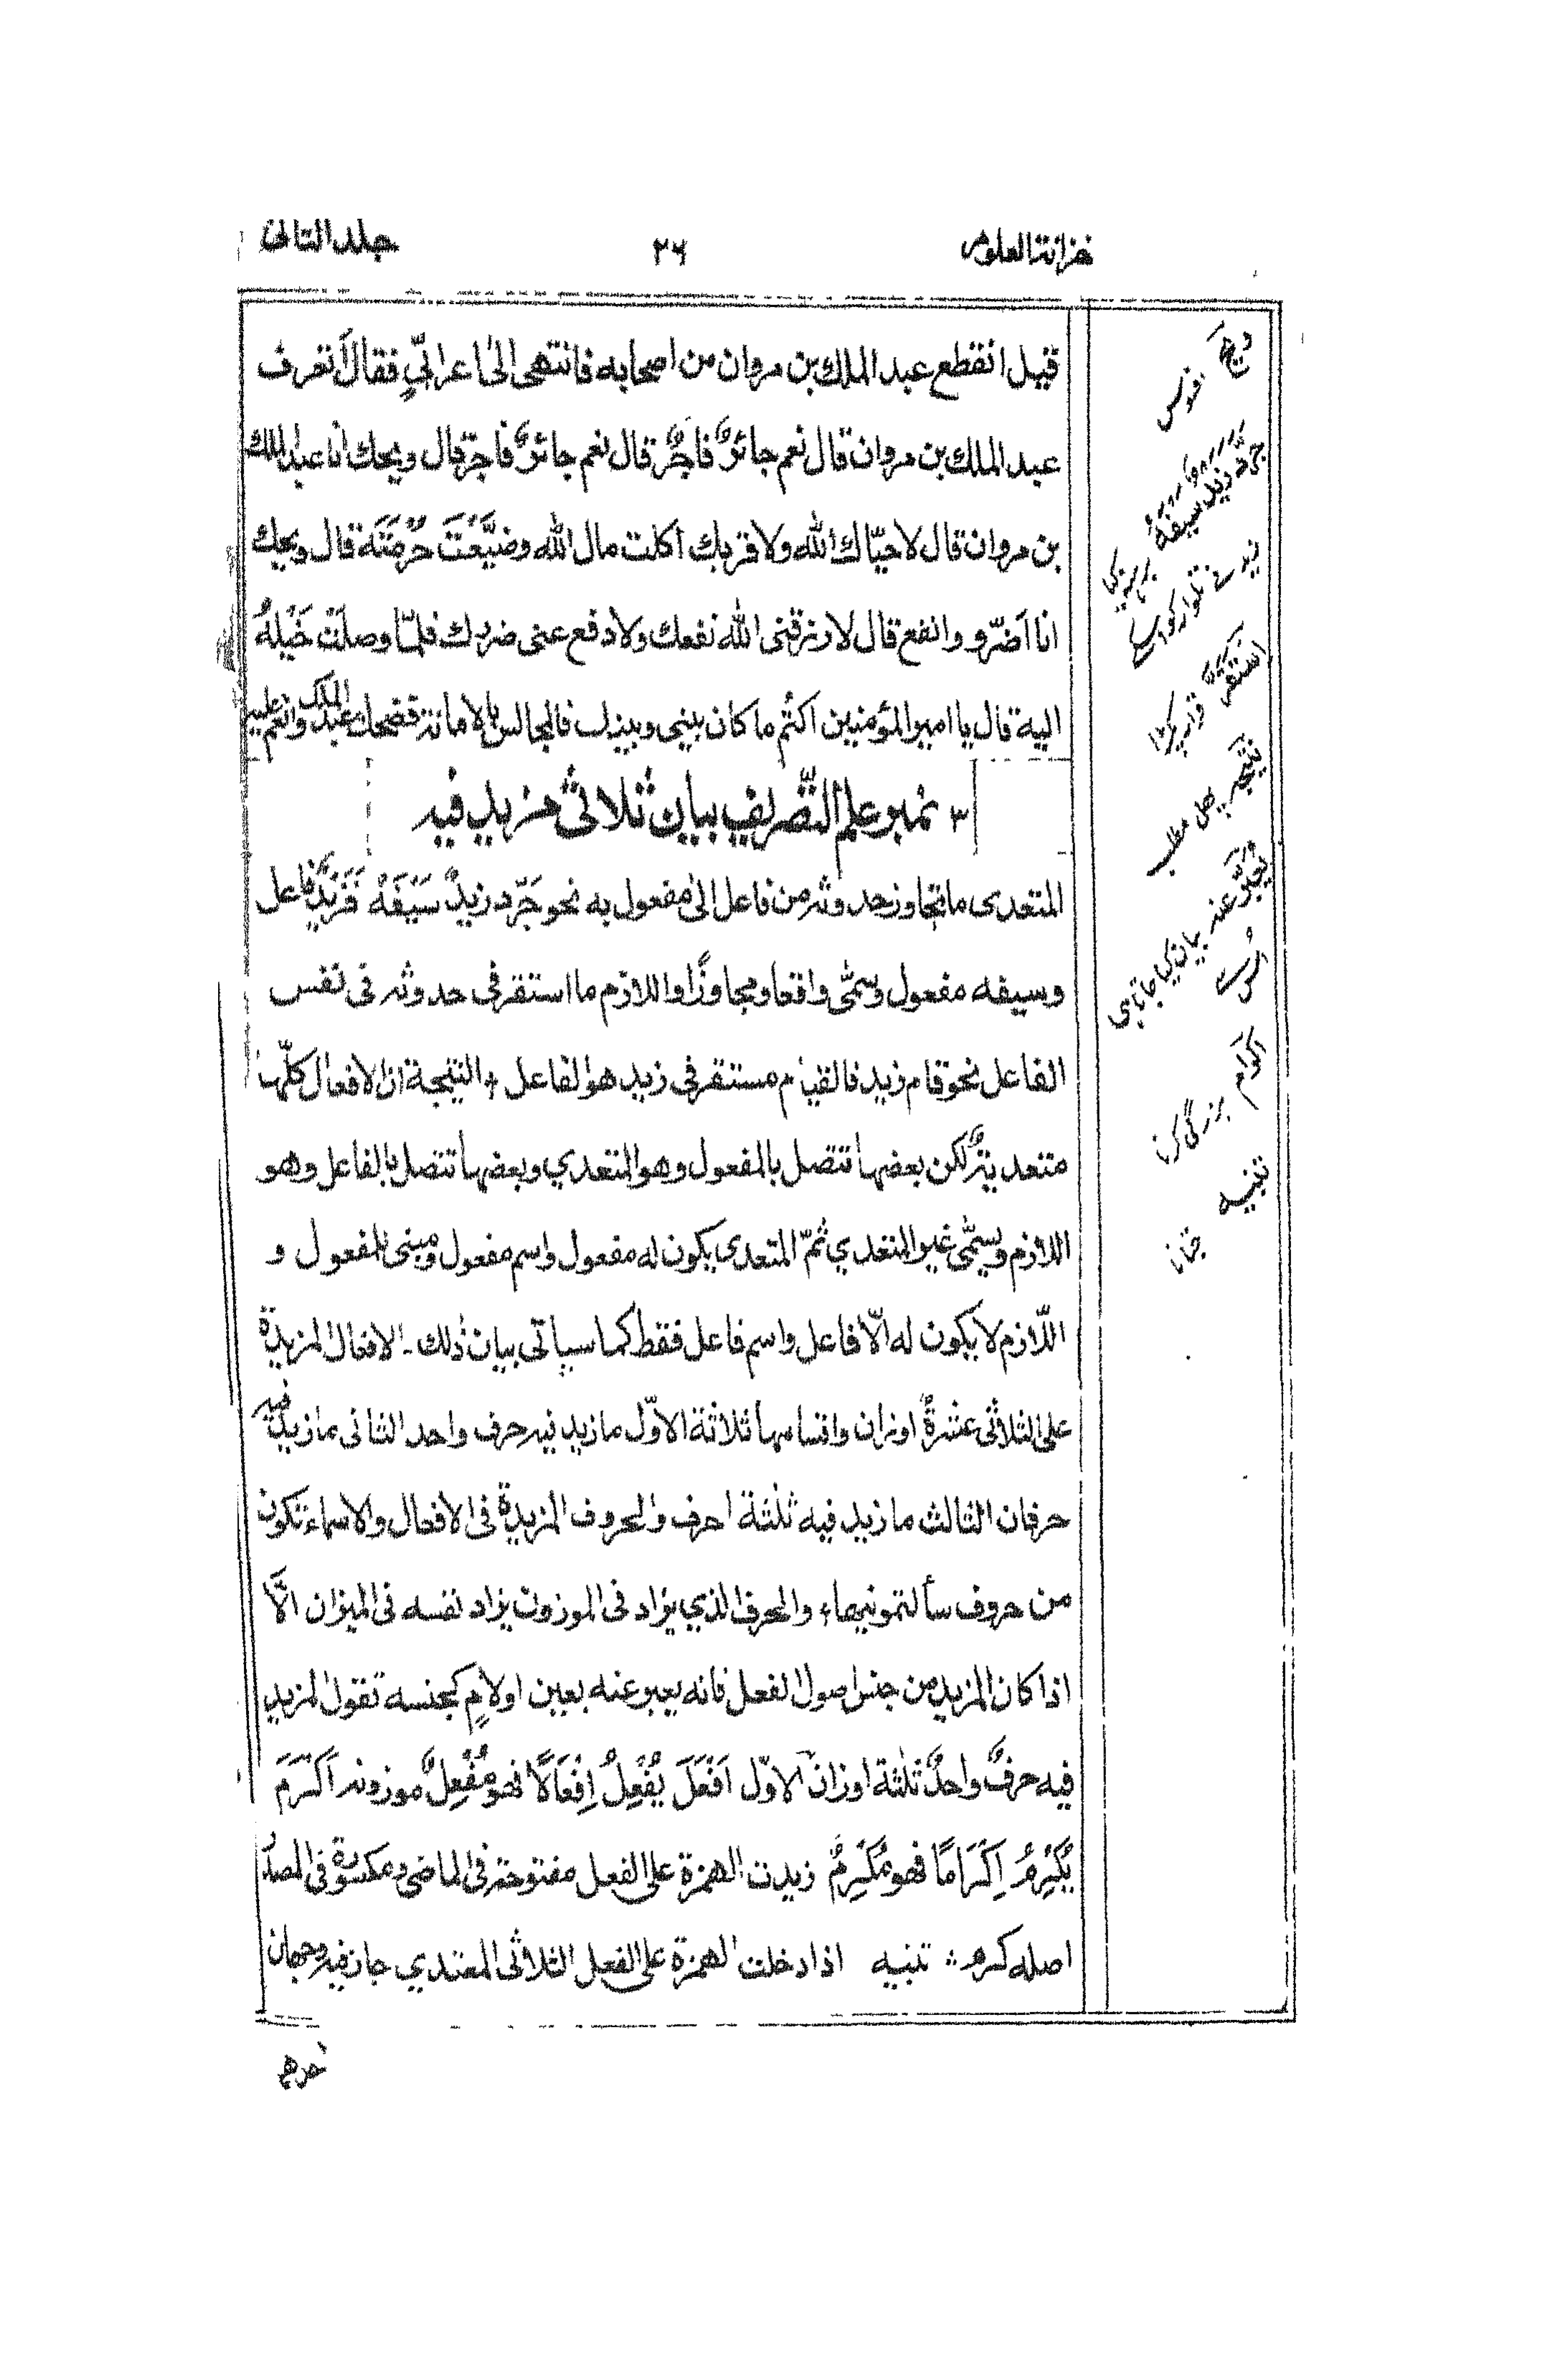 خزانة العلوم
٢٦
جلد الثانی
قيل انقطع عبد الملك بن مروان من اصحابه فانتهى الىٰ اعرابيٍّ فقال أتعرف
عبد الملك بن مروان قال نعم جائرٌ فاجرٌ قال نعم جائرٌ فاجرٌ قال ويحك انا عبد الملك
بن مروان قال لا حيّاك الله ولا قربك أكلت مال الله وضيَّعْتَ حُرْمَتَه قال ويحك
انا اَضرّ و وانفع قال لا رزقنى الله نفعك ولا دفع عنى ضرك فلمّا وصلَتْ خَيْلهُ
اليه قال يا امير المؤمنين اكتُم ما كان بينى وبينك فالمجالس بالامانة فضحك عبد الملك وانعم عليه
٣ نمبر علم التّصريف بيان ثلاثى مزيد فيه
المتعدى ما تجاوز حدوثه من فاعل الىٰ مفعول به نحو جَرّد زيدٌ سَيْفَهٗ فَزَيدٌ فاعل
وسيفه مفعول وسمّى واقعا ومجاوزًا واللازم ما استقر فى حدوثه فى نفس
الفاعل نحو قام زيد فالقيام مستقر فى زيد هو الفاعل + النتيجة ان الافعال كلّها
متعديةٌ لكن بعضها تتصل بالمفعول وهو المتعدي وبعضها تتصل بالفاعل وهو
اللازم ويسمّى غير المتعدي ثمّ المتعدى يكون له مفعول واسم مفعول ومبنى للمفعول و
اللّازم لا يكون له الّا فاعل واسم فاعل فقط كما سياتى بيان ذلك ۔ الافعال المزيدة
على الثلاثى عشرةٌ اوزان واقسامها ثلاثة الاوّل ما زيد فيه حرف واحد الثانى ما زيد فيه
حرفان الثالث ما زيد فيه ثلثة احرف والحروف المزيدة فى الافعال والاسماء تكون
من حروف سألتمونيها، والحرف الذي يزاد فى الموزون يزاد نفسه فى الميزان الَّا
اذا كان المزيد من جنس اصول الفعل فانه يعبر عنه بعين او لامٍ كجنسه تقول المزيد
فيه حرفٌ واحدٌ ثلٰثة اوزان الاوّل اَفْعَلَ يُفْعِلُ اِفْعَالًا فهو مُفْعِلٌ موزونه اَكْرَمَ
يُكْرِمُ اِكْرَامًا فهو مُكْرِمٌ زيدت الهمزة على الفعل مفتوحة فى الماضى ومكسورة فى المصدر
اصله كرم ؞ تنبيه اذا دخلت الهمزة على الفعل الثلاثى المتعدي جاز فيه وجهان
احدهما
ويح افسوس
جرّد زيد سيفهٗ
زید نے تلوار کو
استقرّ قرار پکڑا
نتيجه حاصل مطلب
يعبّر عنه بیان کیا جاتا ہی
اُس سے
اكرام بزرگی کرنا
تنبيه جتانا